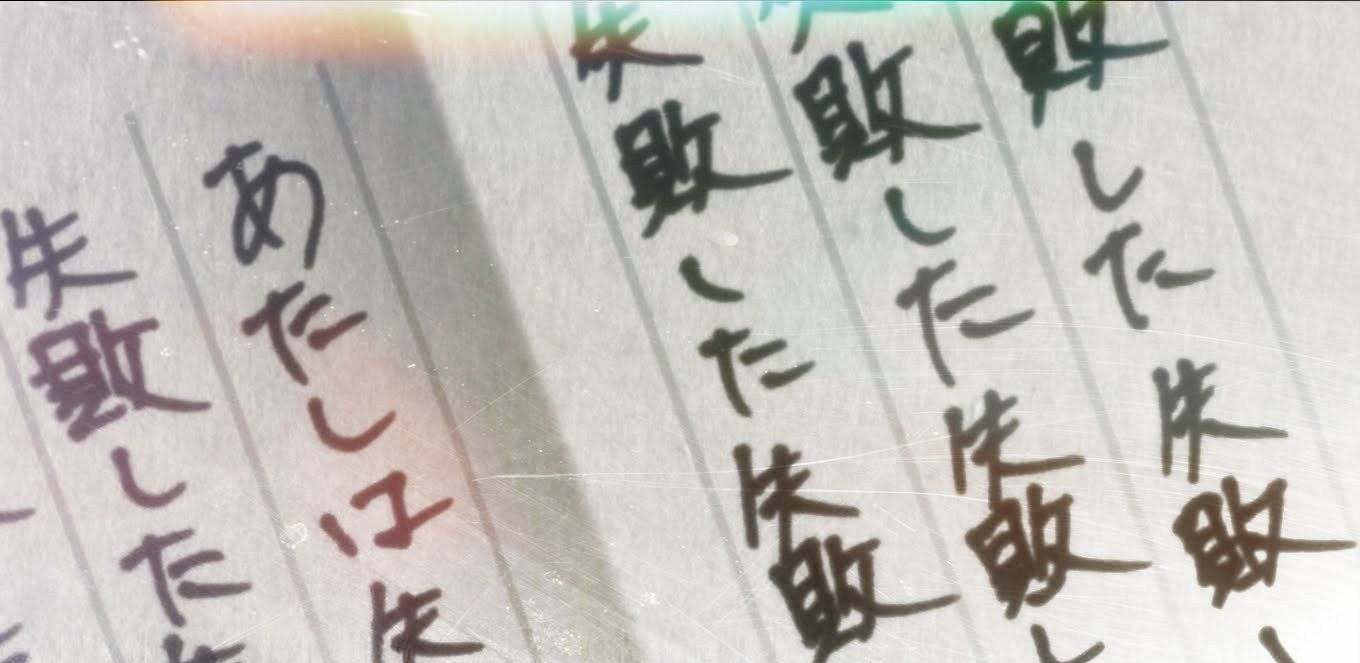 敗した失敗
敗した失敗し
失敗した失敗
あたしは失
失敗した